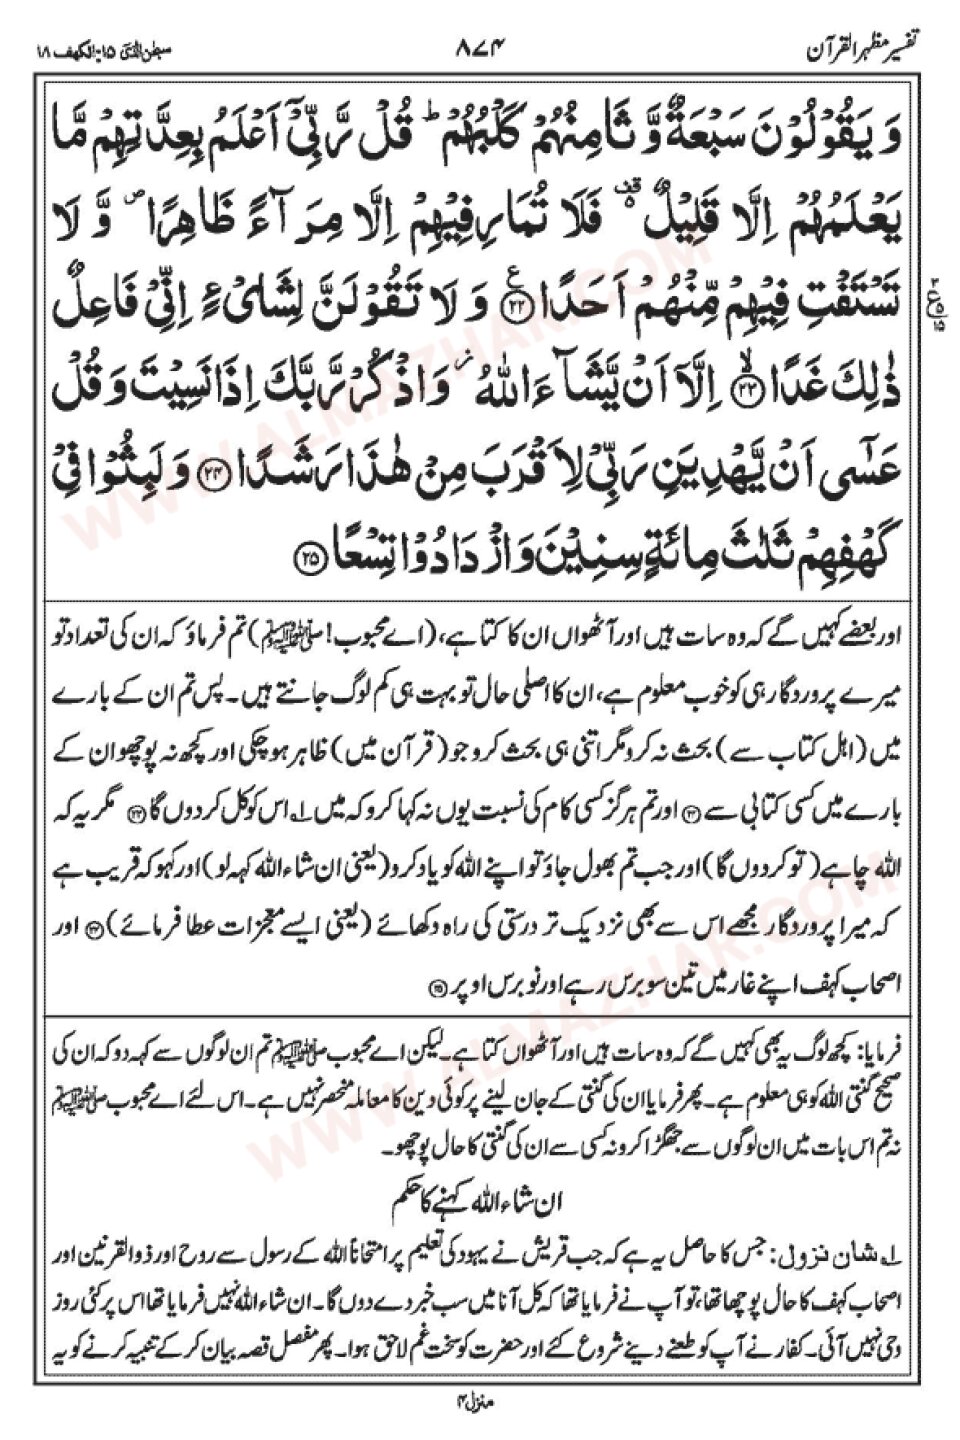 تفسیر مظہر القرآن
۸۷۴
سبحٰن الذی ۱۵ - الکھف ۱۸
وَيَقُوْلُوْنَ سَبْعَةٌ وَّثَامِنُهُمْ كَلْبُهُمْ ؕ قُلْ رَّبِّيْۤ اَعْلَمُ بِعِدَّتِهِمْ مَّا
يَعْلَمُهُمْ اِلَّا قَلِيْلٌ ۬۫ فَلَا تُمَارِ فِيْهِمْ اِلَّا مِرَآءً ظَاهِرًا ۪ وَّلَا
تَسْتَفْتِ فِيْهِمْ مِّنْهُمْ اَحَدًا ﴿۲۲﴾ وَلَا تَقُوْلَنَّ لِشَایْءٍ اِنِّيْ فَاعِلٌ
ذٰلِكَ غَدًا ﴿۲۳﴾ اِلَّاۤ اَنْ يَّشَآءَ اللّٰهُ ؗ وَاذْكُرْ رَّبَّكَ اِذَا نَسِيْتَ وَقُلْ
عَسٰۤى اَنْ يَّهْدِيَنِ رَبِّيْ لِاَقْرَبَ مِنْ هٰذَا رَشَدًا ﴿۲۴﴾ وَلَبِثُوْا فِيْ
كَهْفِهِمْ ثَلٰثَ مِائَةٍ سِنِيْنَ وَازْدَادُوْا تِسْعًا ﴿۲۵﴾
اور بعضے کہیں گے کہ وہ سات ہیں اور آٹھواں ان کا کتا ہے، (اے محبوب! ﷺ) تم فرماؤ کہ ان کی تعداد تو
میرے پروردگار ہی کو خوب معلوم ہے، ان کا اصلی حال تو بہت ہی کم لوگ جانتے ہیں۔ پس تم ان کے بارے
میں (اہل کتاب سے) بحث نہ کرو مگر اتنی ہی بحث کرو جو (قرآن میں) ظاہر ہو چکی اور کچھ نہ پوچھو ان کے
بارے میں کسی کتابی سے ۲۲ اور تم ہرگز کسی کام کی نسبت یوں نہ کہا کرو کہ میں ۱؎ اس کو کل کر دوں گا ۲۳ مگر یہ کہ
اللہ چاہے (تو کردوں گا) اور جب تم بھول جاؤ تو اپنے اللہ کو یاد کرو (یعنی ان شاء اللہ کہہ لو) اور کہو کہ قریب ہے
کہ میرا پروردگار مجھے اس سے بھی نزدیک تر درستی کی راہ دکھائے (یعنی ایسے معجزات عطا فرمائے) ۲۴ اور
اصحاب کہف اپنے غار میں تین سو برس رہے اور نو برس اوپر ۲۵
فرمایا: کچھ لوگ یہ بھی کہیں گے کہ وہ سات ہیں اور آٹھواں کتا ہے۔ لیکن اے محبوب ﷺ تم ان لوگوں سے کہہ دو کہ ان کی
صحیح گنتی اللہ کو ہی معلوم ہے۔ پھر فرمایا ان کی گنتی کے جان لینے پر کوئی دین کا معاملہ منحصر نہیں ہے۔ اس لئے اے محبوب ﷺ
نہ تم اس بات میں ان لوگوں سے جھگڑا کرو نہ کسی سے ان کی گنتی کا حال پوچھو۔
ان شاء اللہ کہنے کا حکم
۱؎ شان نزول: جس کا حاصل یہ ہے کہ جب قریش نے یہود کی تعلیم پر امتحاناً اللہ کے رسول سے روح اور ذوالقرنین اور
اصحاب کہف کا حال پوچھا تھا، تو آپ نے فرمایا تھا کہ کل آنا میں سب خبر دے دوں گا۔ ان شاء اللہ نہیں فرمایا تھا اس پر کئی روز
وحی نہیں آئی۔ کفار نے آپ کو طعنے دینے شروع کئے اور حضرت کو سخت غم لاحق ہوا۔ پھر مفصل قصہ بیان کر کے تنبیہ کرنے کو یہ
منزل ۴
WWW.ALMAZHAR.COM
WWW.ALMAZHAR.COM